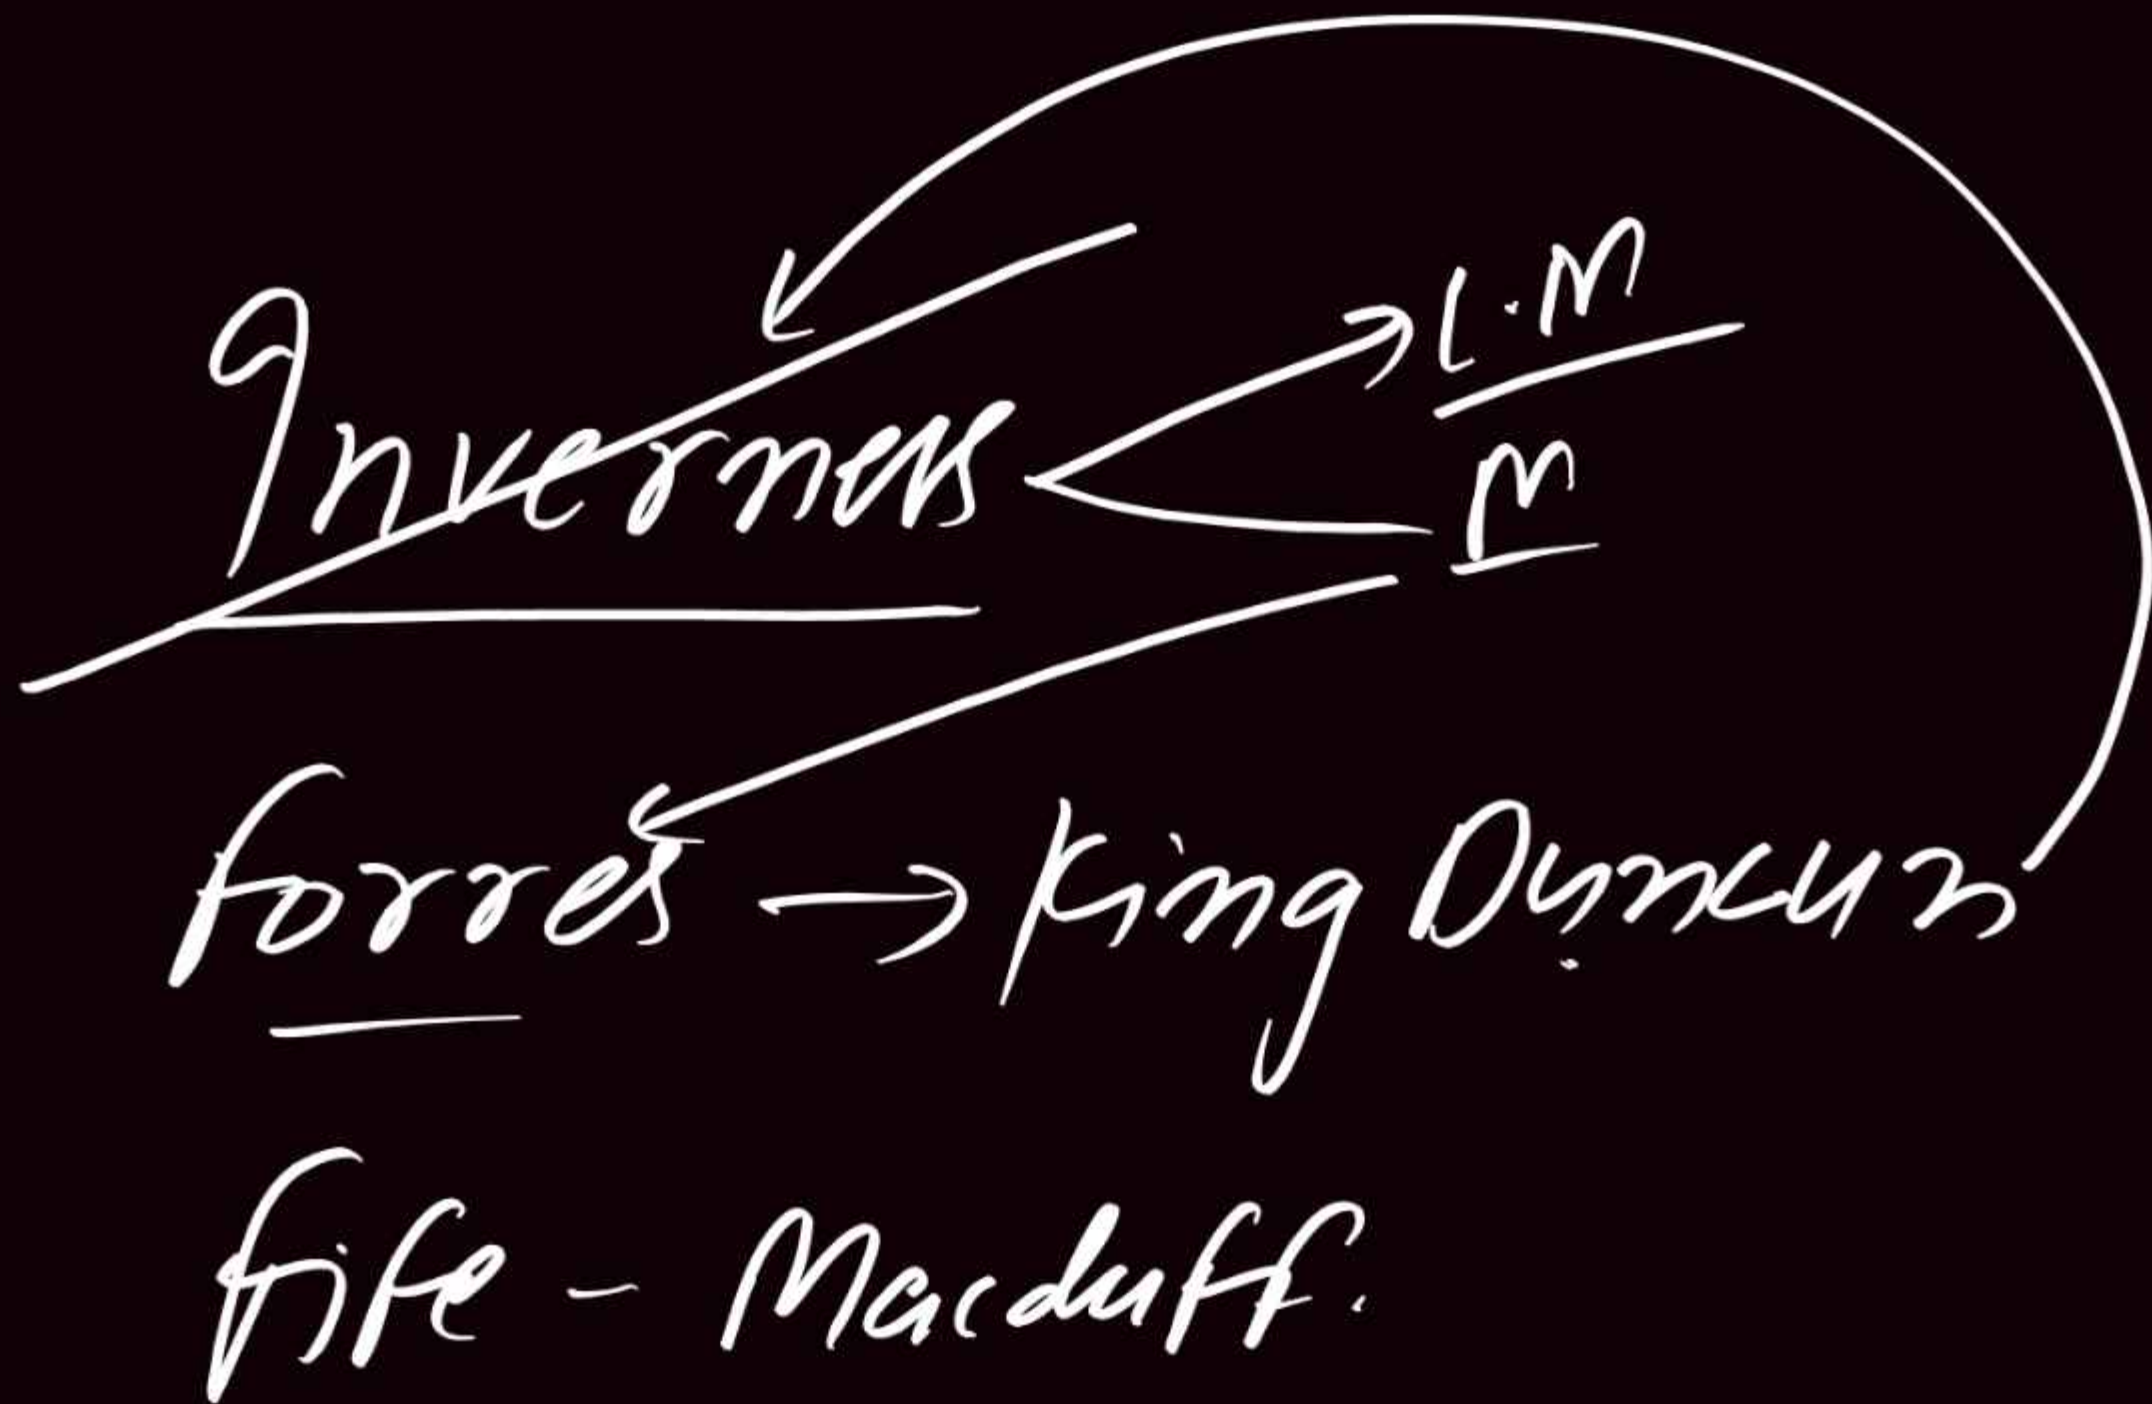 L.M
Inverness
M
Forres → King Duncan
Fife - Macduff.